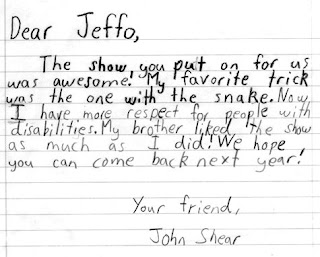 Dear Jeffo,
The show you put on for us
was awesome! My favorite trick
was the one with the snake. Now
I have more respect for people with
disabilities. My brother liked the show
as much as I did! We hope
you can come back next year!
Your friend,
John Shear